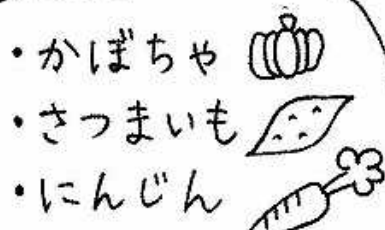 ・かぼちゃ
・さつまいも
・にんじん